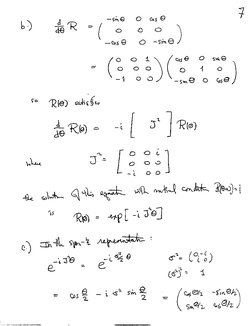 7
b.) d/dθ R = ( -sinθ 0 cosθ
0 0 0
-cosθ 0 -sinθ )
= ( 0 0 1
0 0 0
-1 0 0 ) ( cosθ 0 sinθ
0 1 0
-sinθ 0 cosθ )
so R(θ) satisfies
d/dθ R(θ) = -i [ J² ] R(θ)
where J² = [ 0 0 i
0 0 0
-i 0 0 ]
the solution of this equation with initial condition R(θ=0)=1
is R(θ) = exp[-i J²θ]
c.) In the spin-½ representation:
e^{-i J²θ} = e^{-i σ²/2 θ} σ² = ( 0 -i
i 0 )
(σ²)² = 1
= cos θ/2 - i σ² sin θ/2 = ( cosθ/2 -sinθ/2
sinθ/2 cosθ/2 )